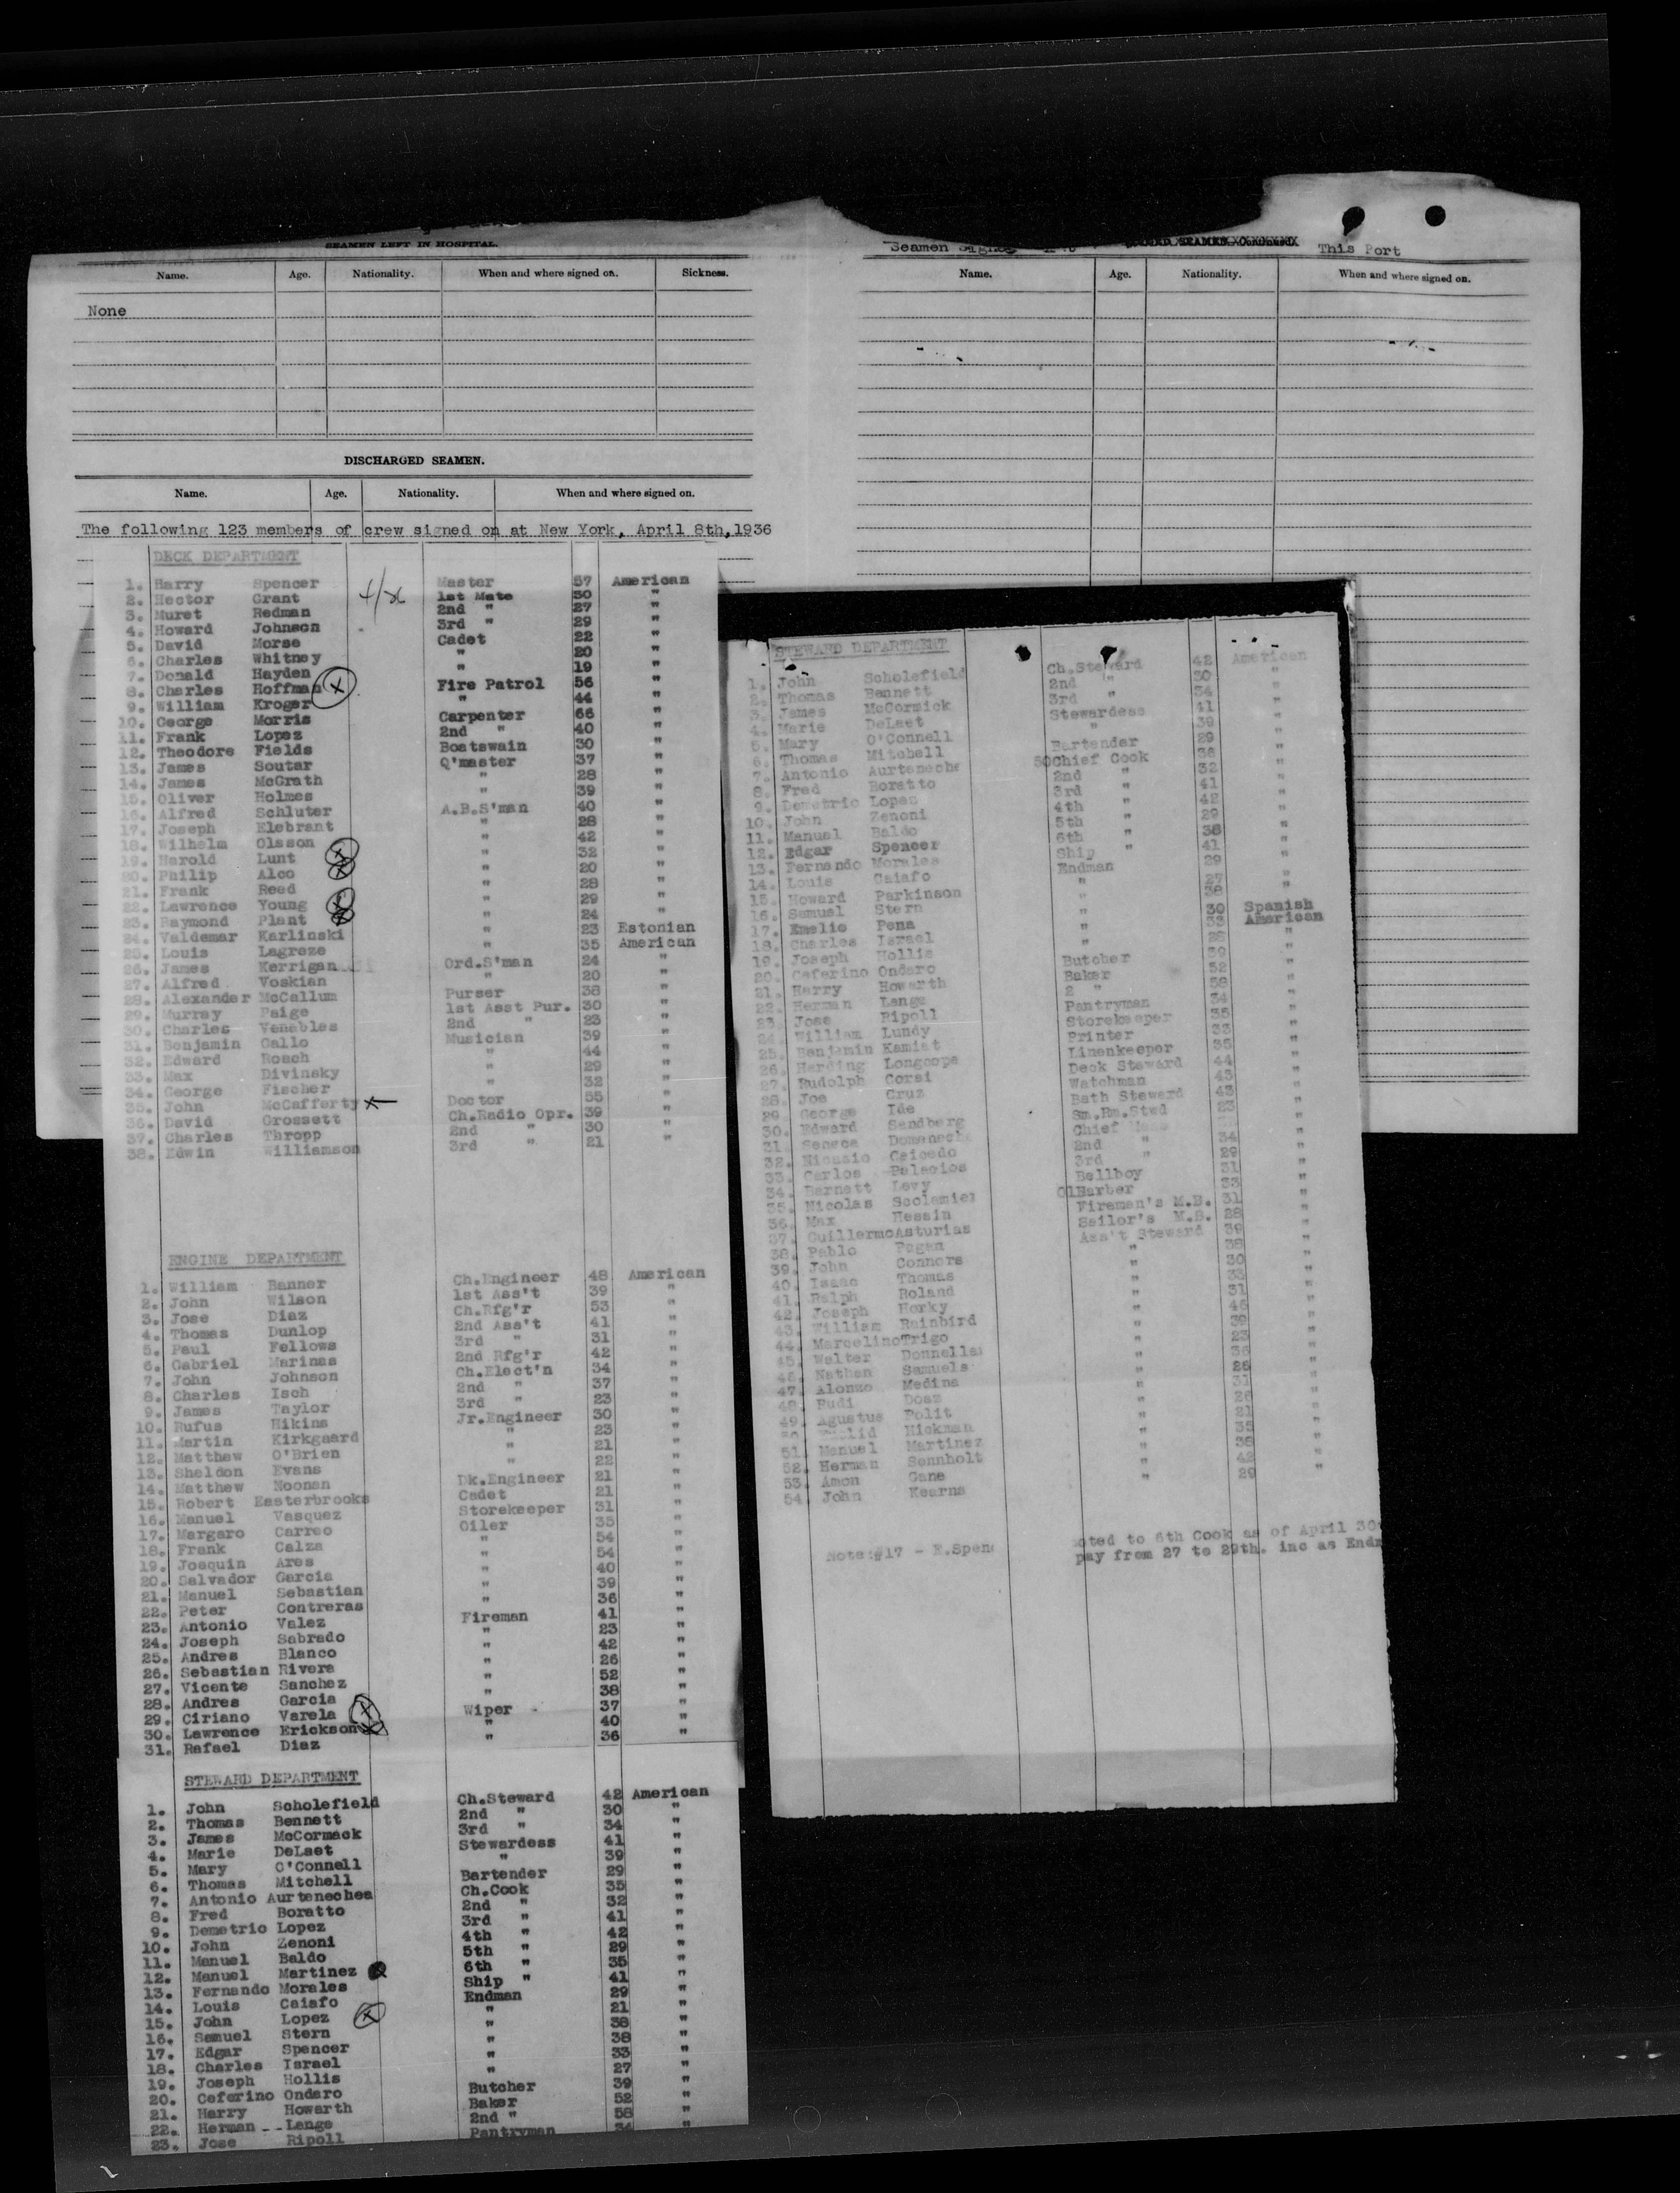 SEAMEN LEFT IN HOSPITAL.
Name. Age. Nationality. When and where signed on. Sickness.
None
DISCHARGED SEAMEN.
Name. Age. Nationality. When and where signed on.
The following 123 members of crew signed on at New York, April 8th,1936
DECK DEPARTMENT
1. Harry Spencer Master 57 American
2. Hector Grant 1st Mate 30 "
3. Muret Redman 2nd " 27 "
4. Howard Johnson 3rd " 29 "
5. David Morse Cadet 22 "
6. Charles Whitney " 20 "
7. Donald Hayden " 19 "
8. Charles Hoffman Fire Patrol 56 "
9. William Kroger " 44 "
10. George Morris Carpenter 66 "
11. Frank Lopez 2nd " 40 "
12. Theodore Fields Boatswain 30 "
13. James Soutar Q'master 37 "
14. James McGrath " 28 "
15. Oliver Holmes " 39 "
16. Alfred Schluter A.B.S'man 40 "
17. Joseph Elebrant " 28 "
18. Wilhelm Olsson " 42 "
19. Harold Lunt " 32 "
20. Philip Alco " 20 "
21. Frank Reed " 28 "
22. Lawrence Young " 29 "
23. Raymond Plant " 24 "
24. Valdemar Karlinski " 23 Estonian
25. Louis Lagreze " 35 American
26. James Kerrigan Ord.S'man 24 "
27. Alfred Voskian " 20 "
28. Alexander McCallum Purser 38 "
29. Murray Paige 1st Asst Pur. 30 "
30. Charles Venables 2nd " 23 "
31. Benjamin Gallo Musician 39 "
32. Edward Roach " 44 "
33. Max Divinsky " 29 "
34. George Fischer " 32 "
35. John McCafferty Doctor 55 "
36. David Grossett Ch.Radio Opr. 39 "
37. Charles Thropp 2nd " 30 "
38. Edwin Williamson 3rd " 21 "
ENGINE DEPARTMENT
1. William Banner Ch.Engineer 48 American
2. John Wilson 1st Ass't 39 "
3. Jose Diaz Ch.Rfg'r 53 "
4. Thomas Dunlop 2nd Ass't 41 "
5. Paul Fellows 3rd " 31 "
6. Gabriel Marinas 2nd Rfg'r 42 "
7. John Johnson Ch.Elect'n 34 "
8. Charles Isch 2nd " 37 "
9. James Taylor 3rd " 23 "
10. Rufus Hikins Jr.Engineer 30 "
11. Martin Kirkgaard " 23 "
12. Matthew O'Brien " 21 "
13. Sheldon Evans " 22 "
14. Matthew Noonan Dk.Engineer 21 "
15. Robert Easterbrooks Cadet 21 "
16. Manuel Vasquez Storekeeper 31 "
17. Margaro Carreo Oiler 35 "
18. Frank Calza " 54 "
19. Josquin Ares " 54 "
20. Salvador Garcia " 40 "
21. Manuel Sebastian " 39 "
22. Peter Contreras " 36 "
23. Antonio Valez Fireman 41 "
24. Joseph Sabrado " 23 "
25. Andres Blanco " 42 "
26. Sebastian Rivera " 26 "
27. Vicente Sanchez " 52 "
28. Andres Garcia " 38 "
29. Ciriano Varela Wiper 37 "
30. Lawrence Erickson " 40 "
31. Rafael Diaz " 36 "
STEWARD DEPARTMENT
1. John Scholefield Ch.Steward 42 American
2. Thomas Bennett 2nd " 30 "
3. James McCormack 3rd " 34 "
4. Marie DeLaet Stewardess 41 "
5. Mary O'Connell " 39 "
6. Thomas Mitchell Bartender 29 "
7. Antonio Aurtenechea Ch.Cook 35 "
8. Fred Boratto 2nd " 32 "
9. Demetrio Lopez 3rd " 41 "
10. John Zenoni 4th " 42 "
11. Manuel Baldo 5th " 29 "
12. Manuel Martinez 6th " 35 "
13. Fernando Morales Ship " 41 "
14. Louis Caiafo Endman 29 "
15. John Lopez " 21 "
16. Samuel Stern " 38 "
17. Edgar Spencer " 38 "
18. Charles Israel " 33 "
19. Joseph Hollis " 27 "
20. Ceferino Ondaro Butcher 39 "
21. Harry Howarth Baker 52 "
22. Herman Lange 2nd " 58 "
23. Jose Ripoll Pantryman 34 "
Seamen Signed This Port
Name. Age. Nationality. When and where signed on.
STEWARD DEPARTMENT
1. John Scholefield Ch.Steward 42 American
2. Thomas Bennett 2nd " 30 "
3. James McCormick 3rd " 34 "
4. Marie DeLaet Stewardess 41 "
5. Mary O'Connell " 39 "
6. Thomas Mitchell Bartender 29 "
7. Antonio Aurteneche Chief Cook 36 "
8. Fred Boratto 2nd " 32 "
9. Demetrio Lopez 3rd " 41 "
10. John Zenoni 4th " 42 "
11. Manuel Baldo 5th " 29 "
12. Edgar Spencer 6th " 38 "
13. Fernando Morales Ship " 41 "
14. Louis Caiafo Endman 29 "
15. Howard Parkinson " 27 "
16. Samuel Stern " 38 "
17. Emelio Pena " 30 Spanish
18. Charles Israel " 33 American
19. Joseph Hollis " 28 "
20. Ceferino Ondaro Butcher 39 "
21. Harry Howarth Baker 52 "
22. Herman Lange 2 " 58 "
23. Jose Ripoll Pantryman 34 "
24. William Lundy Storekeeper 35 "
25. Benjamin Kamiat Printer 33 "
26. Harding Longcope Linenkeeper 35 "
27. Rudolph Corsi Deck Steward 44 "
28. Joe Cruz Watchman 43 "
29. George Ide Bath Steward 43 "
30. Edward Sandberg Sm.Rm.Stwd 23 "
31. Seneca Domenech Chief
32. Nicasio Caicedo 2nd " 34 "
33. Carlos Palacios 3rd " 29 "
34. Barnett Levy Bellboy 31 "
35. Nicolas Barber 33 "
36. Max Hessin Fireman's M.B. 31 "
37. Guillermo Asturias Sailor's M.B. 28 "
38. Pablo Pagan Ass't Steward 39 "
39. John Connors " 38 "
40. Isaac Thomas " 30 "
41. Ralph Roland " 33 "
42. Joseph Horky " 31 "
43. William Rainbird " 46 "
44. Marcelino Trigo " 39 "
45. Walter Donnellan " 23 "
46. Nathan Samuels " 36 "
47. Alonzo Medina " 26 "
48. Rudi Dosz " 31 "
49. Agustus Polit " 26 "
Hickman " 21 "
51. Manuel Martinez " 35 "
52. Herman Sennholt " 38 "
53. Amon Gane " 42 "
54. John Kearns " 29 "
Note:#17 - E.Spen oted to 6th Cook as of April 30
pay from 27 to 29th. inc as End